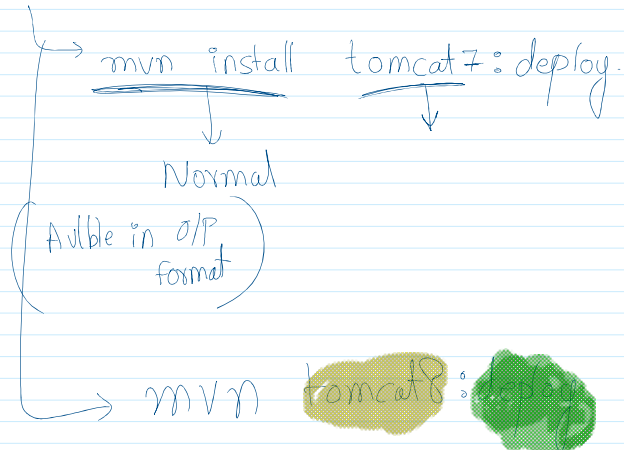 mvn install tomcat7:deploy.
Normal
(Avlble in O/P
format)
mvn tomcat8:deploy